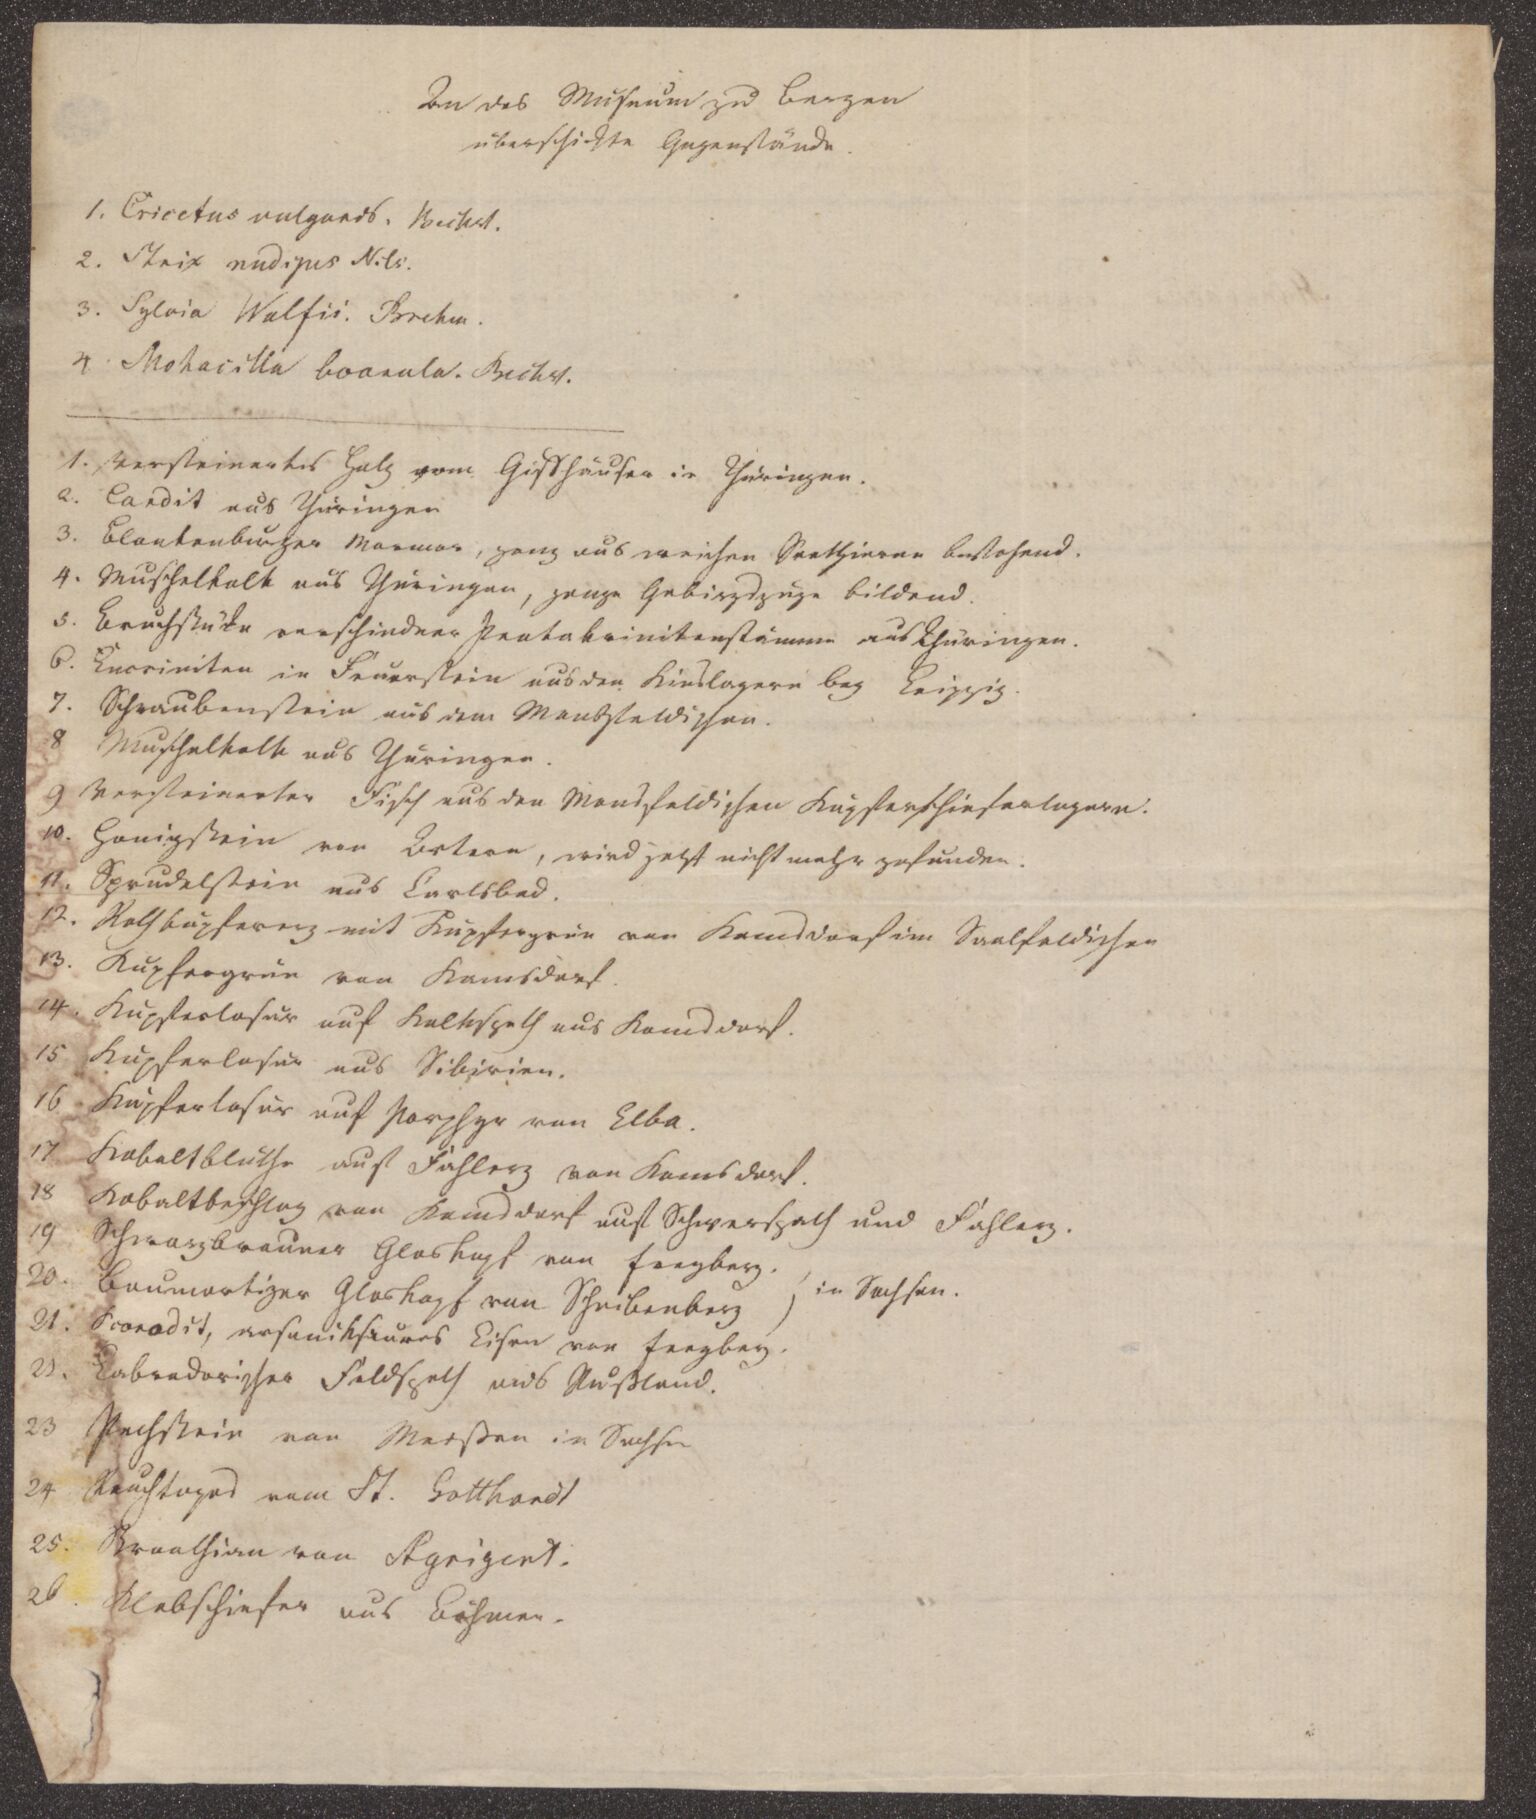 An das Museum zu Bergen
überschickte Gegenstände.
1. Cricetus vulgaris. Bechst.
2. Strix nudipes Nils.
3. Sylvia Wolfii. Brehm.
4. Motacilla boarula. Bechst.
1. Versteinertes Holz vom Giffhäuser in Thüringen.
2. Cardit aus Thüringen
3. Blankenburger Marmor, ganz aus weichen Seethieren bestehend.
4. Muschelkalk aus Thüringen, ganze Gebirgszüge bildend.
5. Bruchstücke verschiedner Pentakrinitenstämme aus Thüringen.
6. Encriniten in Feuerstein aus den Kieslagern bey Leipzig.
7. Schraubenstein aus dem Mansfeldischen.
8 Muschelkalk aus Thüringen.
9 Versteinerter Fisch aus den Mansfeldischen Kupferschieferlagern.
10. Honigstein von Artern, wird jetzt nicht mehr gefunden.
11. Sprudelstein aus Carlsbad.
12. Rothkupfererz mit Kupfergrün von Kamsdorf im Saalfeldischen
13. Kupfergrün von Kamsdorf.
14. Kupferlasur auf Kalkspath aus Kamsdorf.
15 Kupferlasur aus Sibirien.
16 Kupferlasur auf Porphyr von Elba.
17 Kobaltblüthe auf Fahlerz von Kamsdorf.
18 Kobaltbeschlag von Kamsdorf auf Schwerspath und Fahlerz.
19 Schwarzbrauner Glaskopf von Freyberg.
20. Baumartiger Glaskopf von Scheibenberg } in Sachsen.
21. Scorodit, arseniksaures Eisen von Freyberg.
22. Labradorischer Feldspath aus Rußland.
23 Pechstein von Meißen in Sachsen
24 Rauchtopas vom St. Gotthardt
25. von Agrigent.
26. Klebschiefer aus Böhmen.